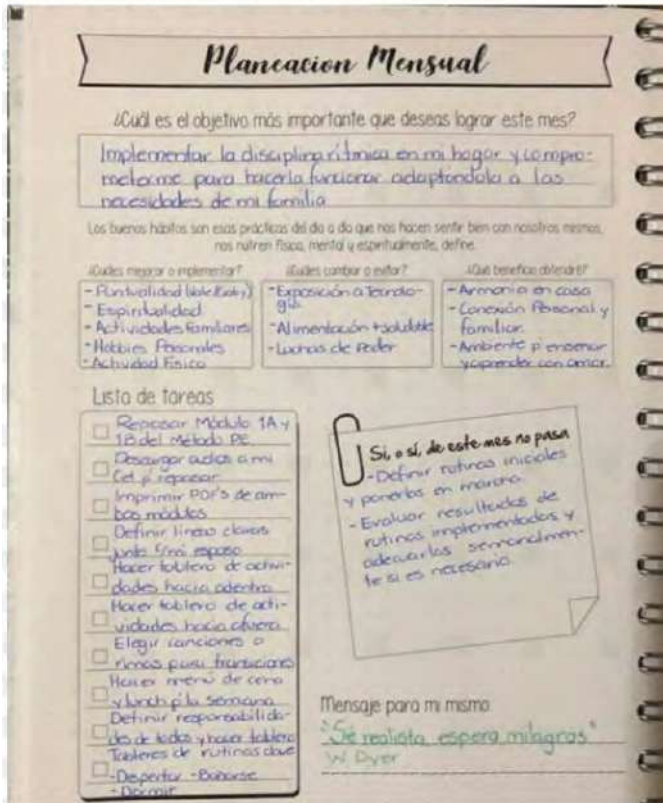 Planeacion Mensual
¿Cuál es el objetivo más importante que deseas lograr este mes?
Implementar la disciplina rítmica en mi hogar y compro-
meterme para hacerla funcionar adaptandola a las
necesidades de mi familia
Los buenos hábitos son esas prácticas del dia a dia que nos hacen sentir bien con nosotros mismos,
nos nutren física, mental y espiritualmente, define.
¿Cuáles mejorar o implementar?
- Puntualidad
- Espiritualidad
- Actividades Familiares
- Hobbies Personales
- Actividad Física
¿Cuáles cambiar o evitar?
- Exposición a Tecnolo-
gía
- Alimentación + saludable
- Luchas de Poder
¿Qué beneficio obtendré?
- Armonía en casa
- Conexión Personal y
familiar.
- Ambiente p' enseñar
y aprender con amor.
Lista de tareas
Repasar Módulo 1A y
1B del Método PE
Descargar audios a mi
Cel p' repasar
Imprimir PDF's de am-
bos módulos
Definir líneas claras
junto c/mi esposo
Hacer tablero de activi-
dades hacia adentro
Hacer tablero de acti-
vidades hacia afuera
Elegir canciones o
rimas para transiciones
Hacer menú de cena
y lunch p' la semana
Definir responsabilida-
des de todos y hacer tablero
Tableros de rutinas clave
- Despertar - Bañarse
- Dormir
Si o sí, de este mes no pasa
- Definir rutinas iniciales
y ponerlas en marcha
- Evaluar resultados de
rutinas implementadas y
adecuarlas semanalmen-
te si es necesario.
Mensaje para mi misma
"Sé realista, espera milagros"
W. Dyer